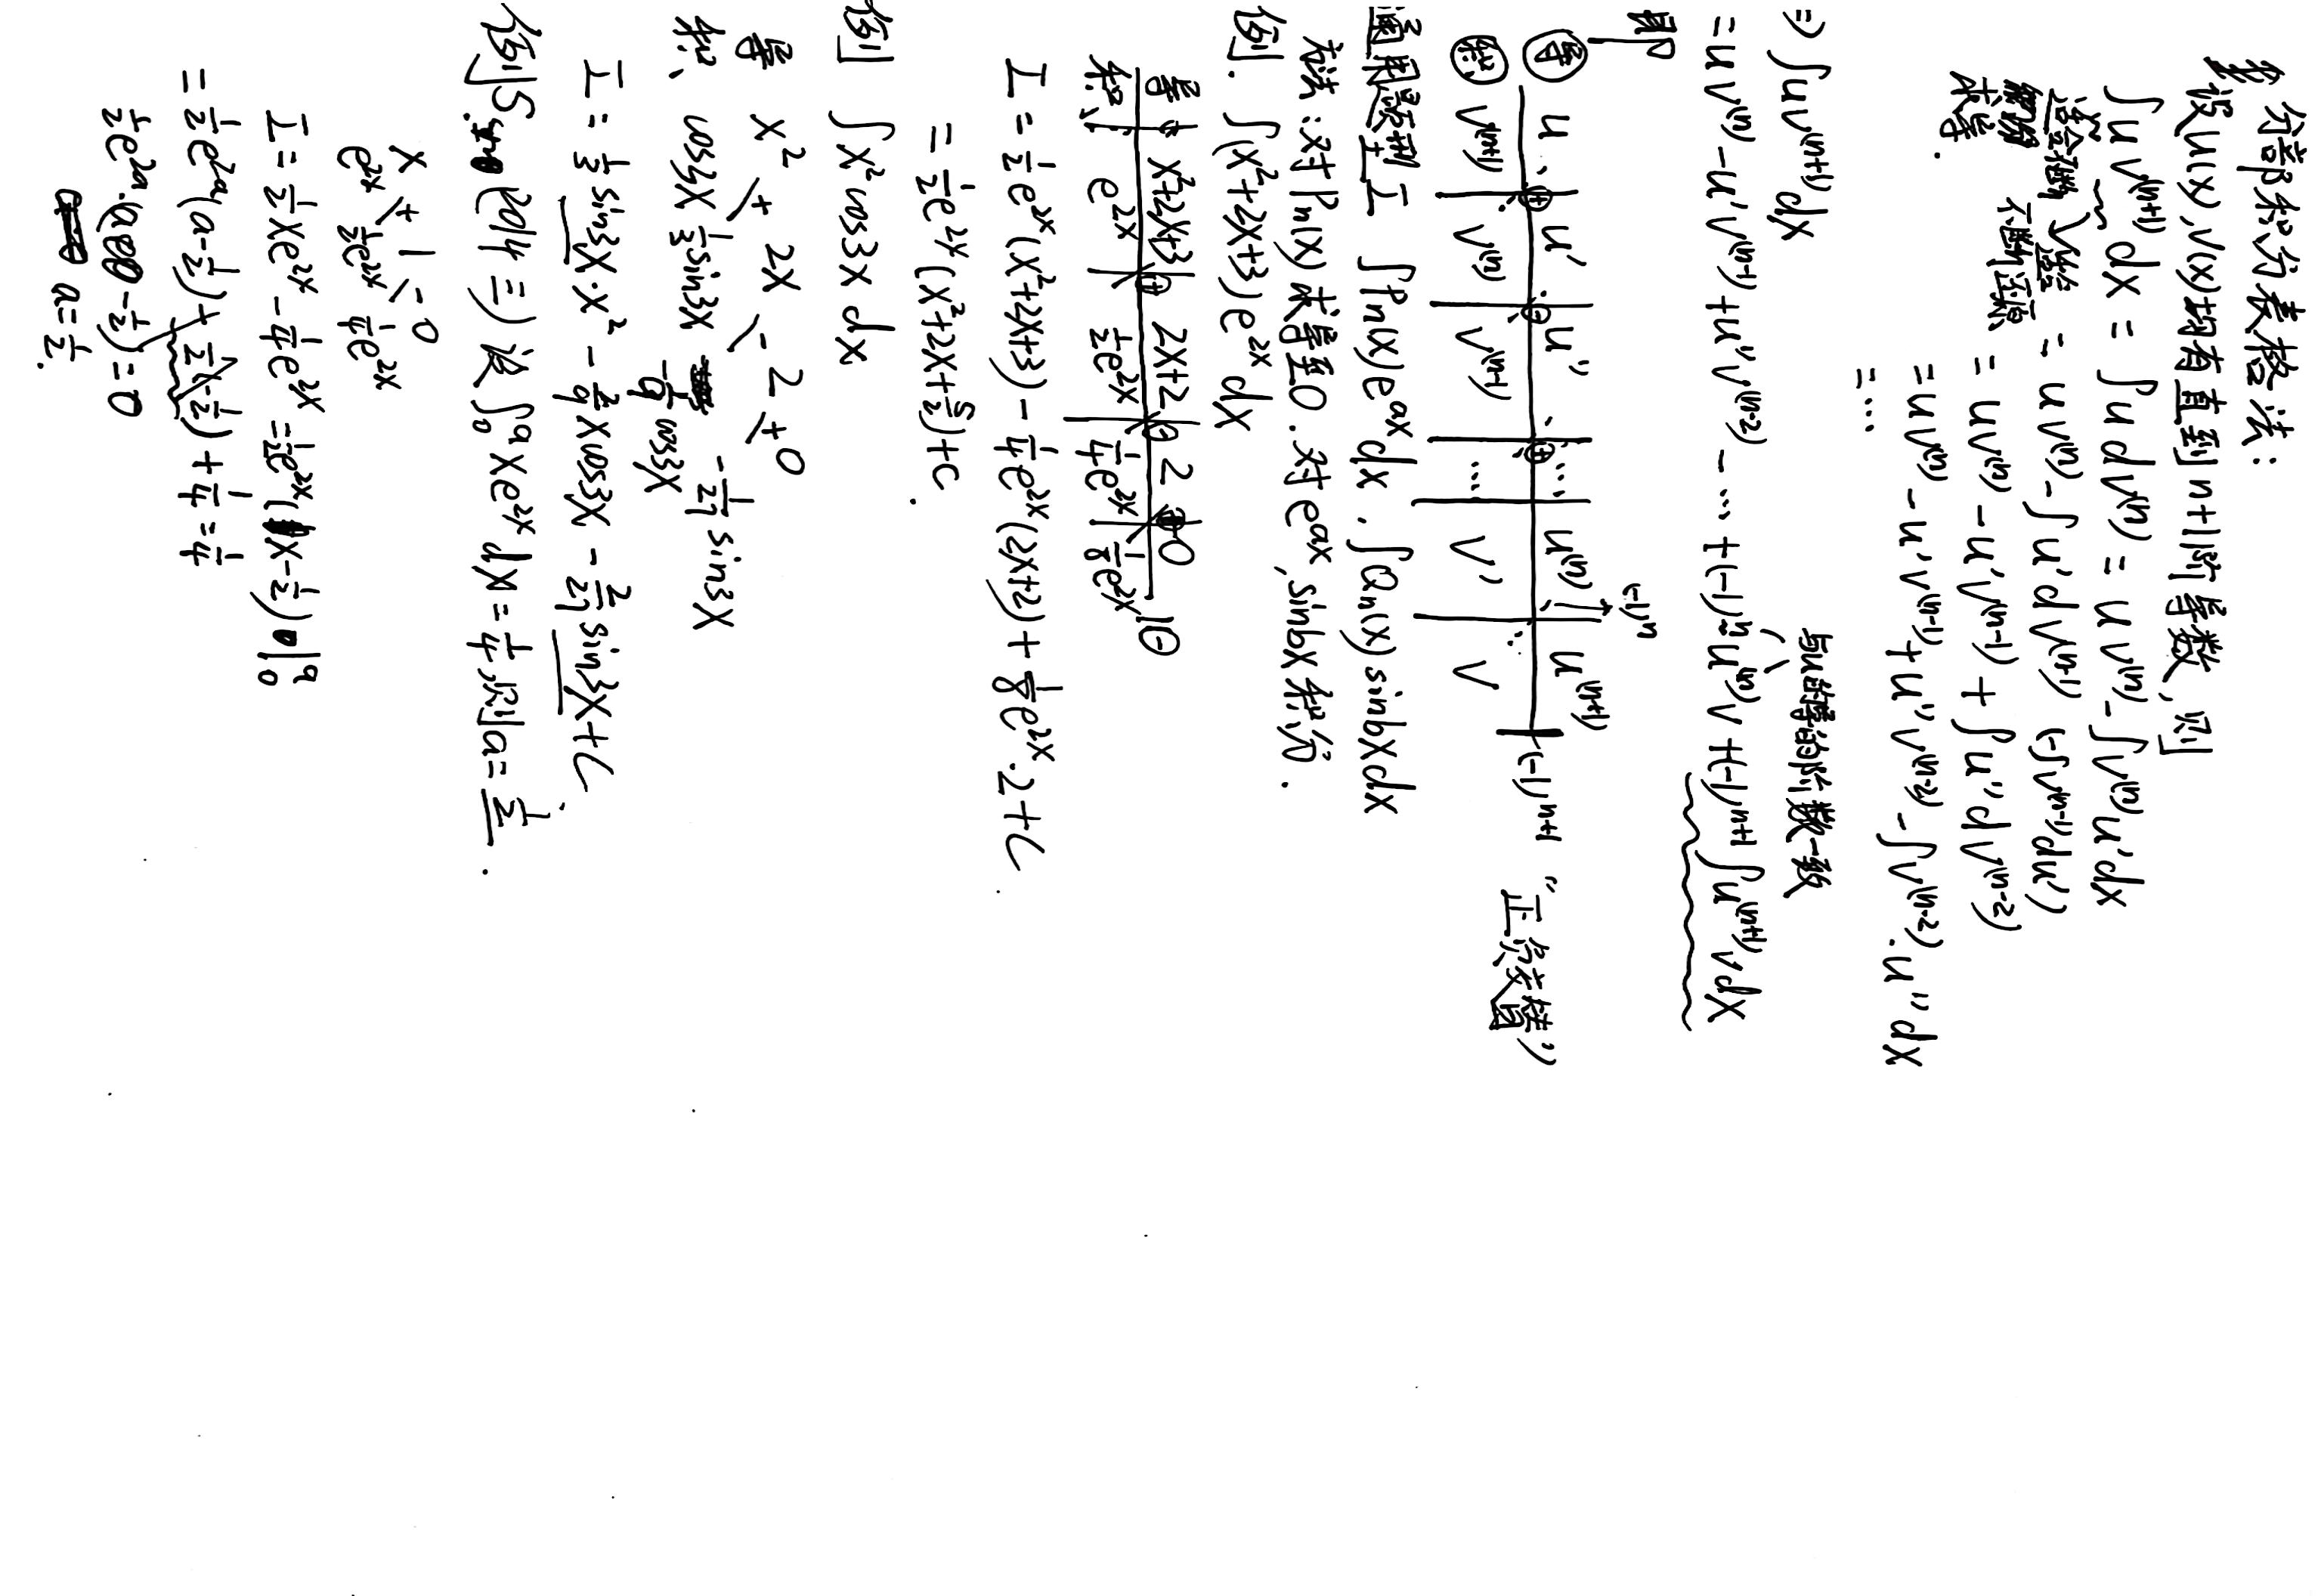 分部积分表格法:
设u(x),v(x)均有直到n+1阶导数,则
∫uv⁽ⁿ⁺¹⁾dx = ∫u dv⁽ⁿ⁾ = uv⁽ⁿ⁾-∫v⁽ⁿ⁾u'dx
适合不断 适合 = uv⁽ⁿ⁾-∫u'dv⁽ⁿ⁻¹⁾ (-∫v⁽ⁿ⁻¹⁾du')
求导. 不断还原 = uv⁽ⁿ⁾-u'v⁽ⁿ⁻¹⁾+∫u''dv⁽ⁿ⁻²⁾
=uv⁽ⁿ⁾-u'v⁽ⁿ⁻¹⁾+u''v⁽ⁿ⁻²⁾-∫v⁽ⁿ⁻²⁾·u''dx
=…
⇒ ∫uv⁽ⁿ⁺¹⁾dx 与u的导的阶数一致
=uv⁽ⁿ⁾-u'v⁽ⁿ⁻¹⁾+u''v⁽ⁿ⁻²⁾-…+(-1)ⁿu⁽ⁿ⁾v+(-1)ⁿ⁺¹∫u⁽ⁿ⁺¹⁾vdx
即
(-1)ⁿ
导 u ⊕ u' ⊖ u'' ⊕ … u⁽ⁿ⁾ u⁽ⁿ⁺¹⁾ (-1)ⁿ⁺¹ “正负交替”
积 v⁽ⁿ⁺¹⁾ v⁽ⁿ⁾ v⁽ⁿ⁻¹⁾ … v' v
通用题型I ∫Pn(x)eᵃˣdx . ∫Qn(x)sinbxdx
方法:对Pn(x)求导至0.对eᵃˣ,sinbx积分.
例. ∫(x²+2x+3)e²ˣdx
导 x²+2x+3 ⊕ 2x+2 ⊖ 2 ⊕ 0 ⊖
积 e²ˣ 1/2e²ˣ 1/4e²ˣ 1/8e²ˣ
I = 1/2e²ˣ(x²+2x+3)-1/4e²ˣ(2x+2)+1/8e²ˣ·2+C.
= 1/2e²ˣ(x²+2x+5/2)+C.
例 ∫x²cos3x dx
导 x² + 2x - 2 + 0
积 cos3x 1/3sin3x -1/9cos3x -1/27sin3x
I = 1/3sin3x·x²-2/9xcos3x-2/27sin3x+C.
例5.(2014 三)设∫₀ᵃxe²ˣdx=1/4,则a=1/2.
x + 1 - 0
e²ˣ 1/2e²ˣ 1/4e²ˣ
I=1/2xe²ˣ-1/4e²ˣ=1/2e²ˣ(x-1/2)|₀ᵃ
=1/2e²ᵃ(a-1/2)+1/4=1/4
1/2e²ᵃ·(a-1/2)=0
a=1/2.